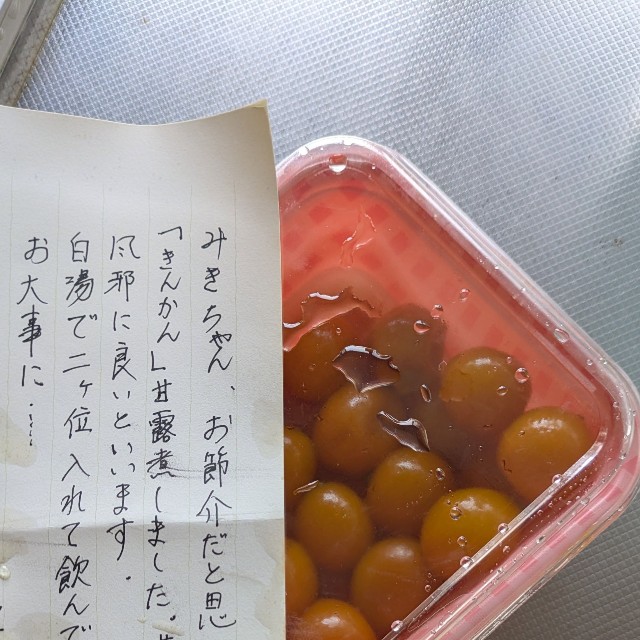 みきちゃん、お節介だと思
「きんかん」甘露煮しました。
風邪に良いといいます.
白湯で二ヶ位入れて飲んで
お大事に……